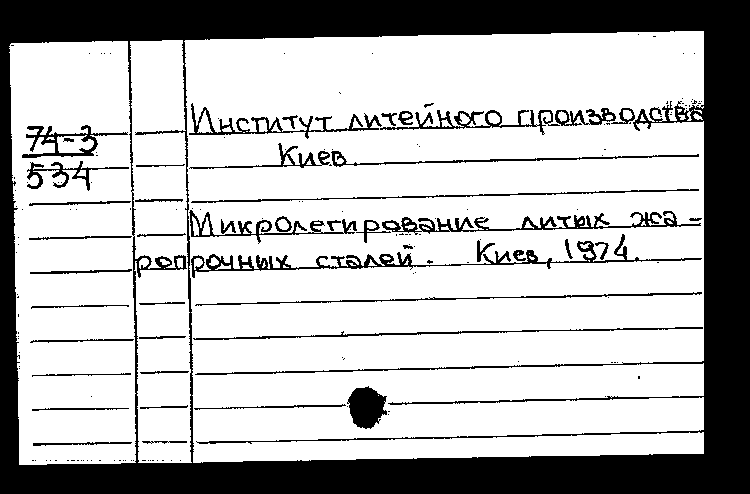 74-3
534
Институт литейного производства
Киев.
Микролегирование литых жа-
ропрочных сталей. Киев, 1974.